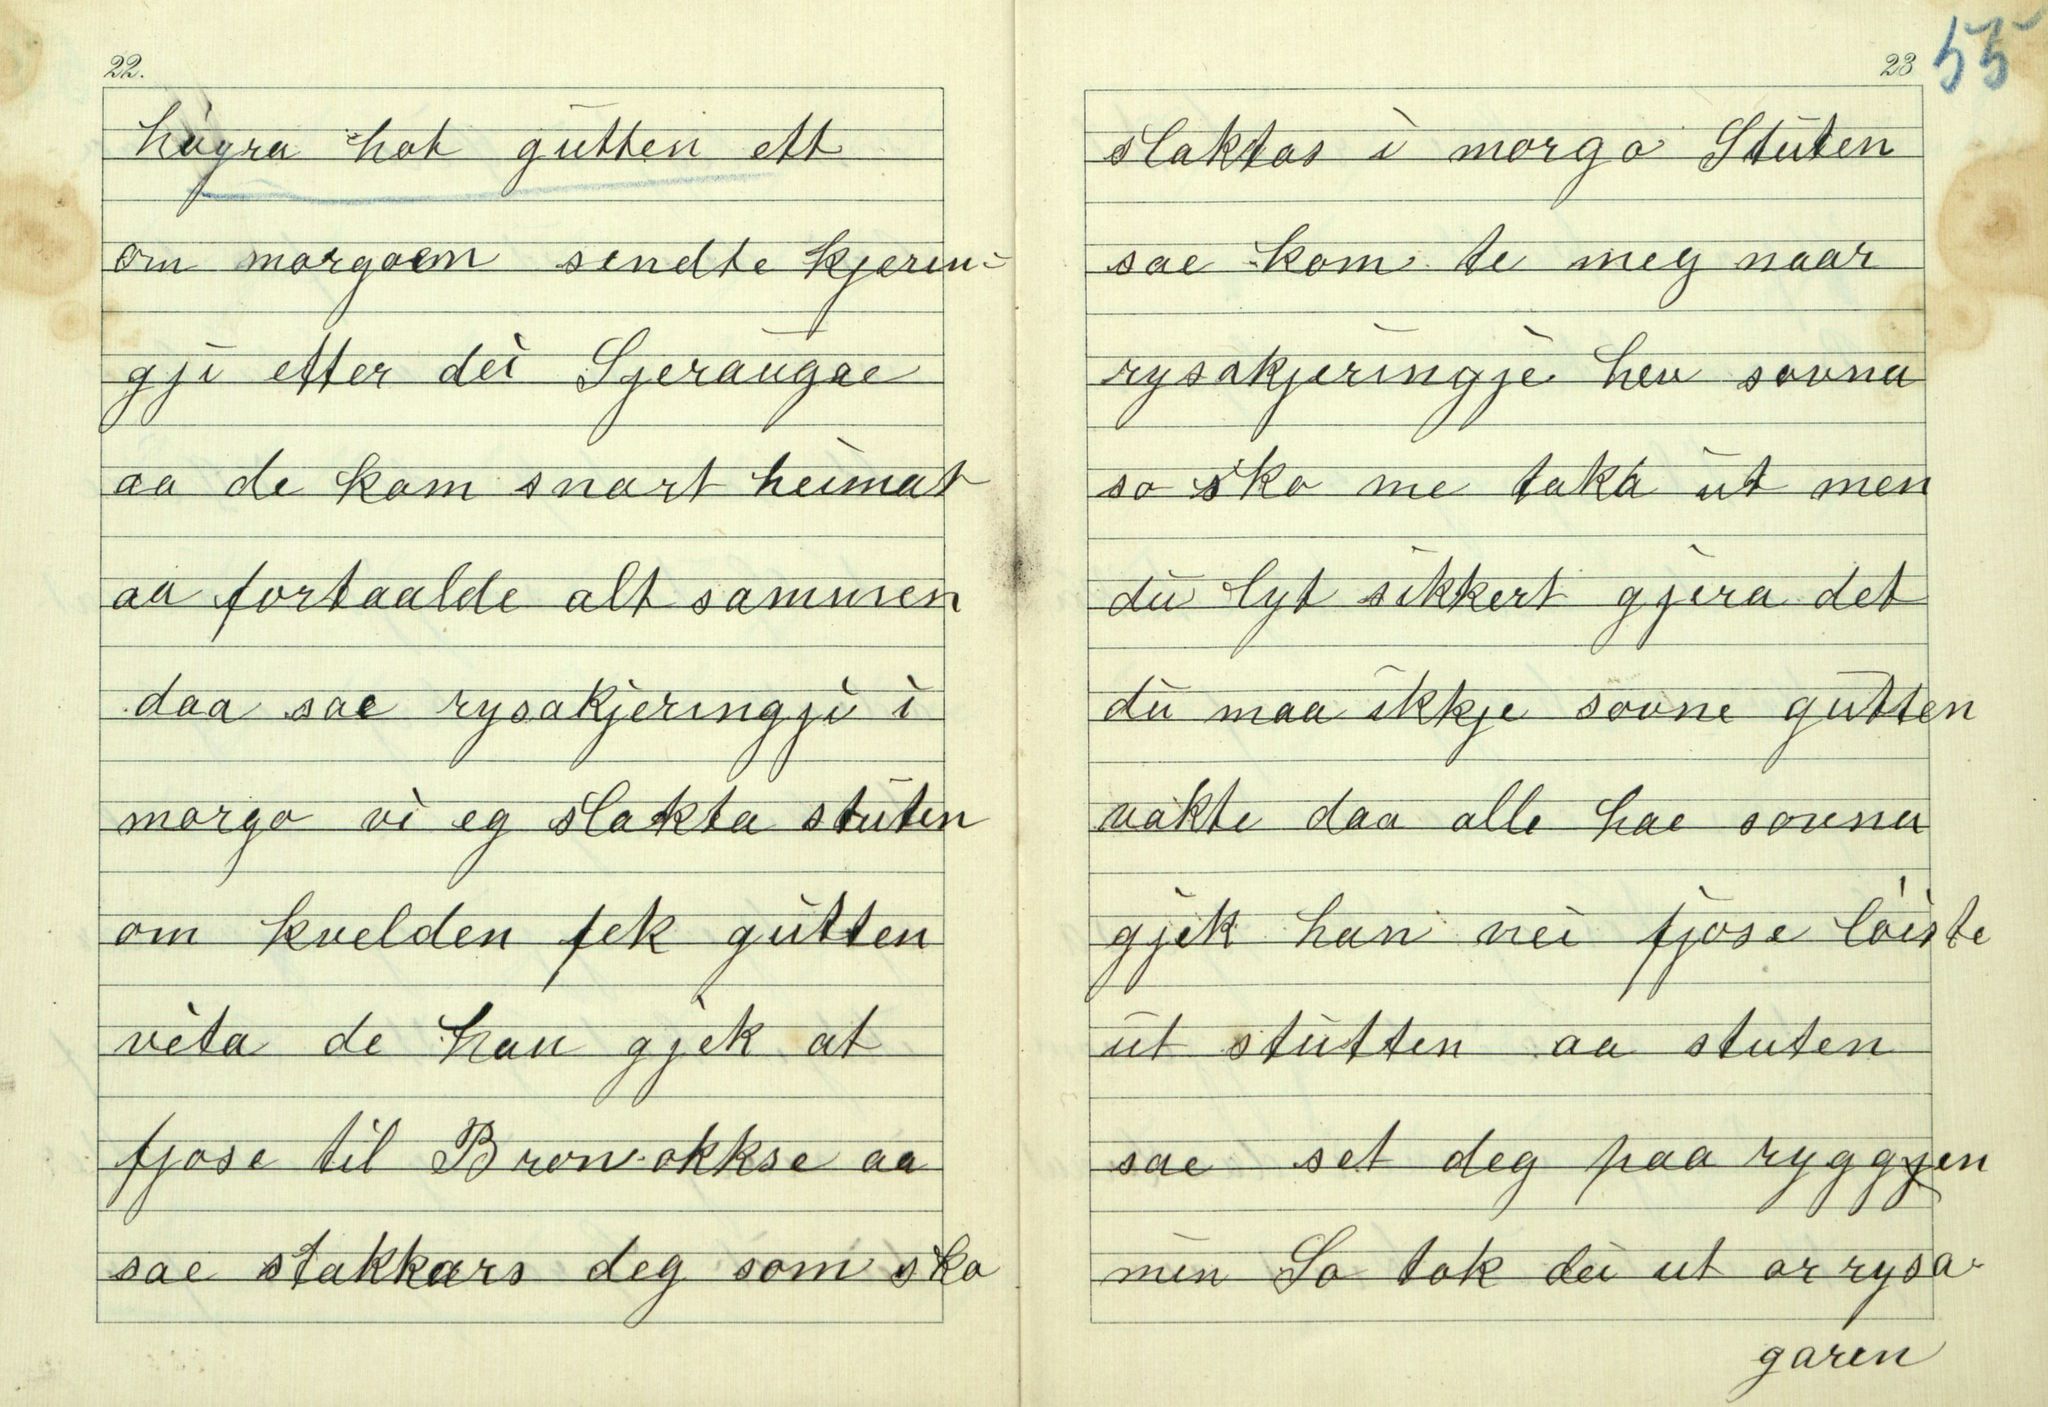 22.
húgra hot gutten ett
om morgoen sendte kjerin-
gji etter dei Sjeraugae
aa de kom snart heimat
aa fortaalde alt sammen
daa sae rysakjeringji i
morgo vi eg slakta stuten
om kvelden fek gutten
vita de han gjek at
fjose til Bronokkse aa
sae stakkars deg som sko
23
55
slaktas i morgo Stuten
sae kom te meg naar
rysakjeringje hev sovna
so sko me taka ut men
du lyt sikkert gjera det
du maa ikkje sovne gutten
vakte daa alle hae sovna
gjek han nei fjose löiste
ut stutten aa stuten
sae set deg paa ryggjen
min So tok dei ut or rysa-
garen